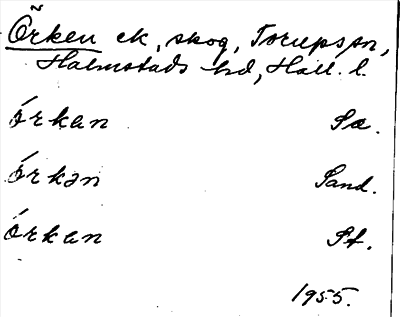 Örken ek, skog, Torups sn,
Halmstads hd, Hall. l.
órkan Sæ.
órkən Sand.
órkan St.
1955.